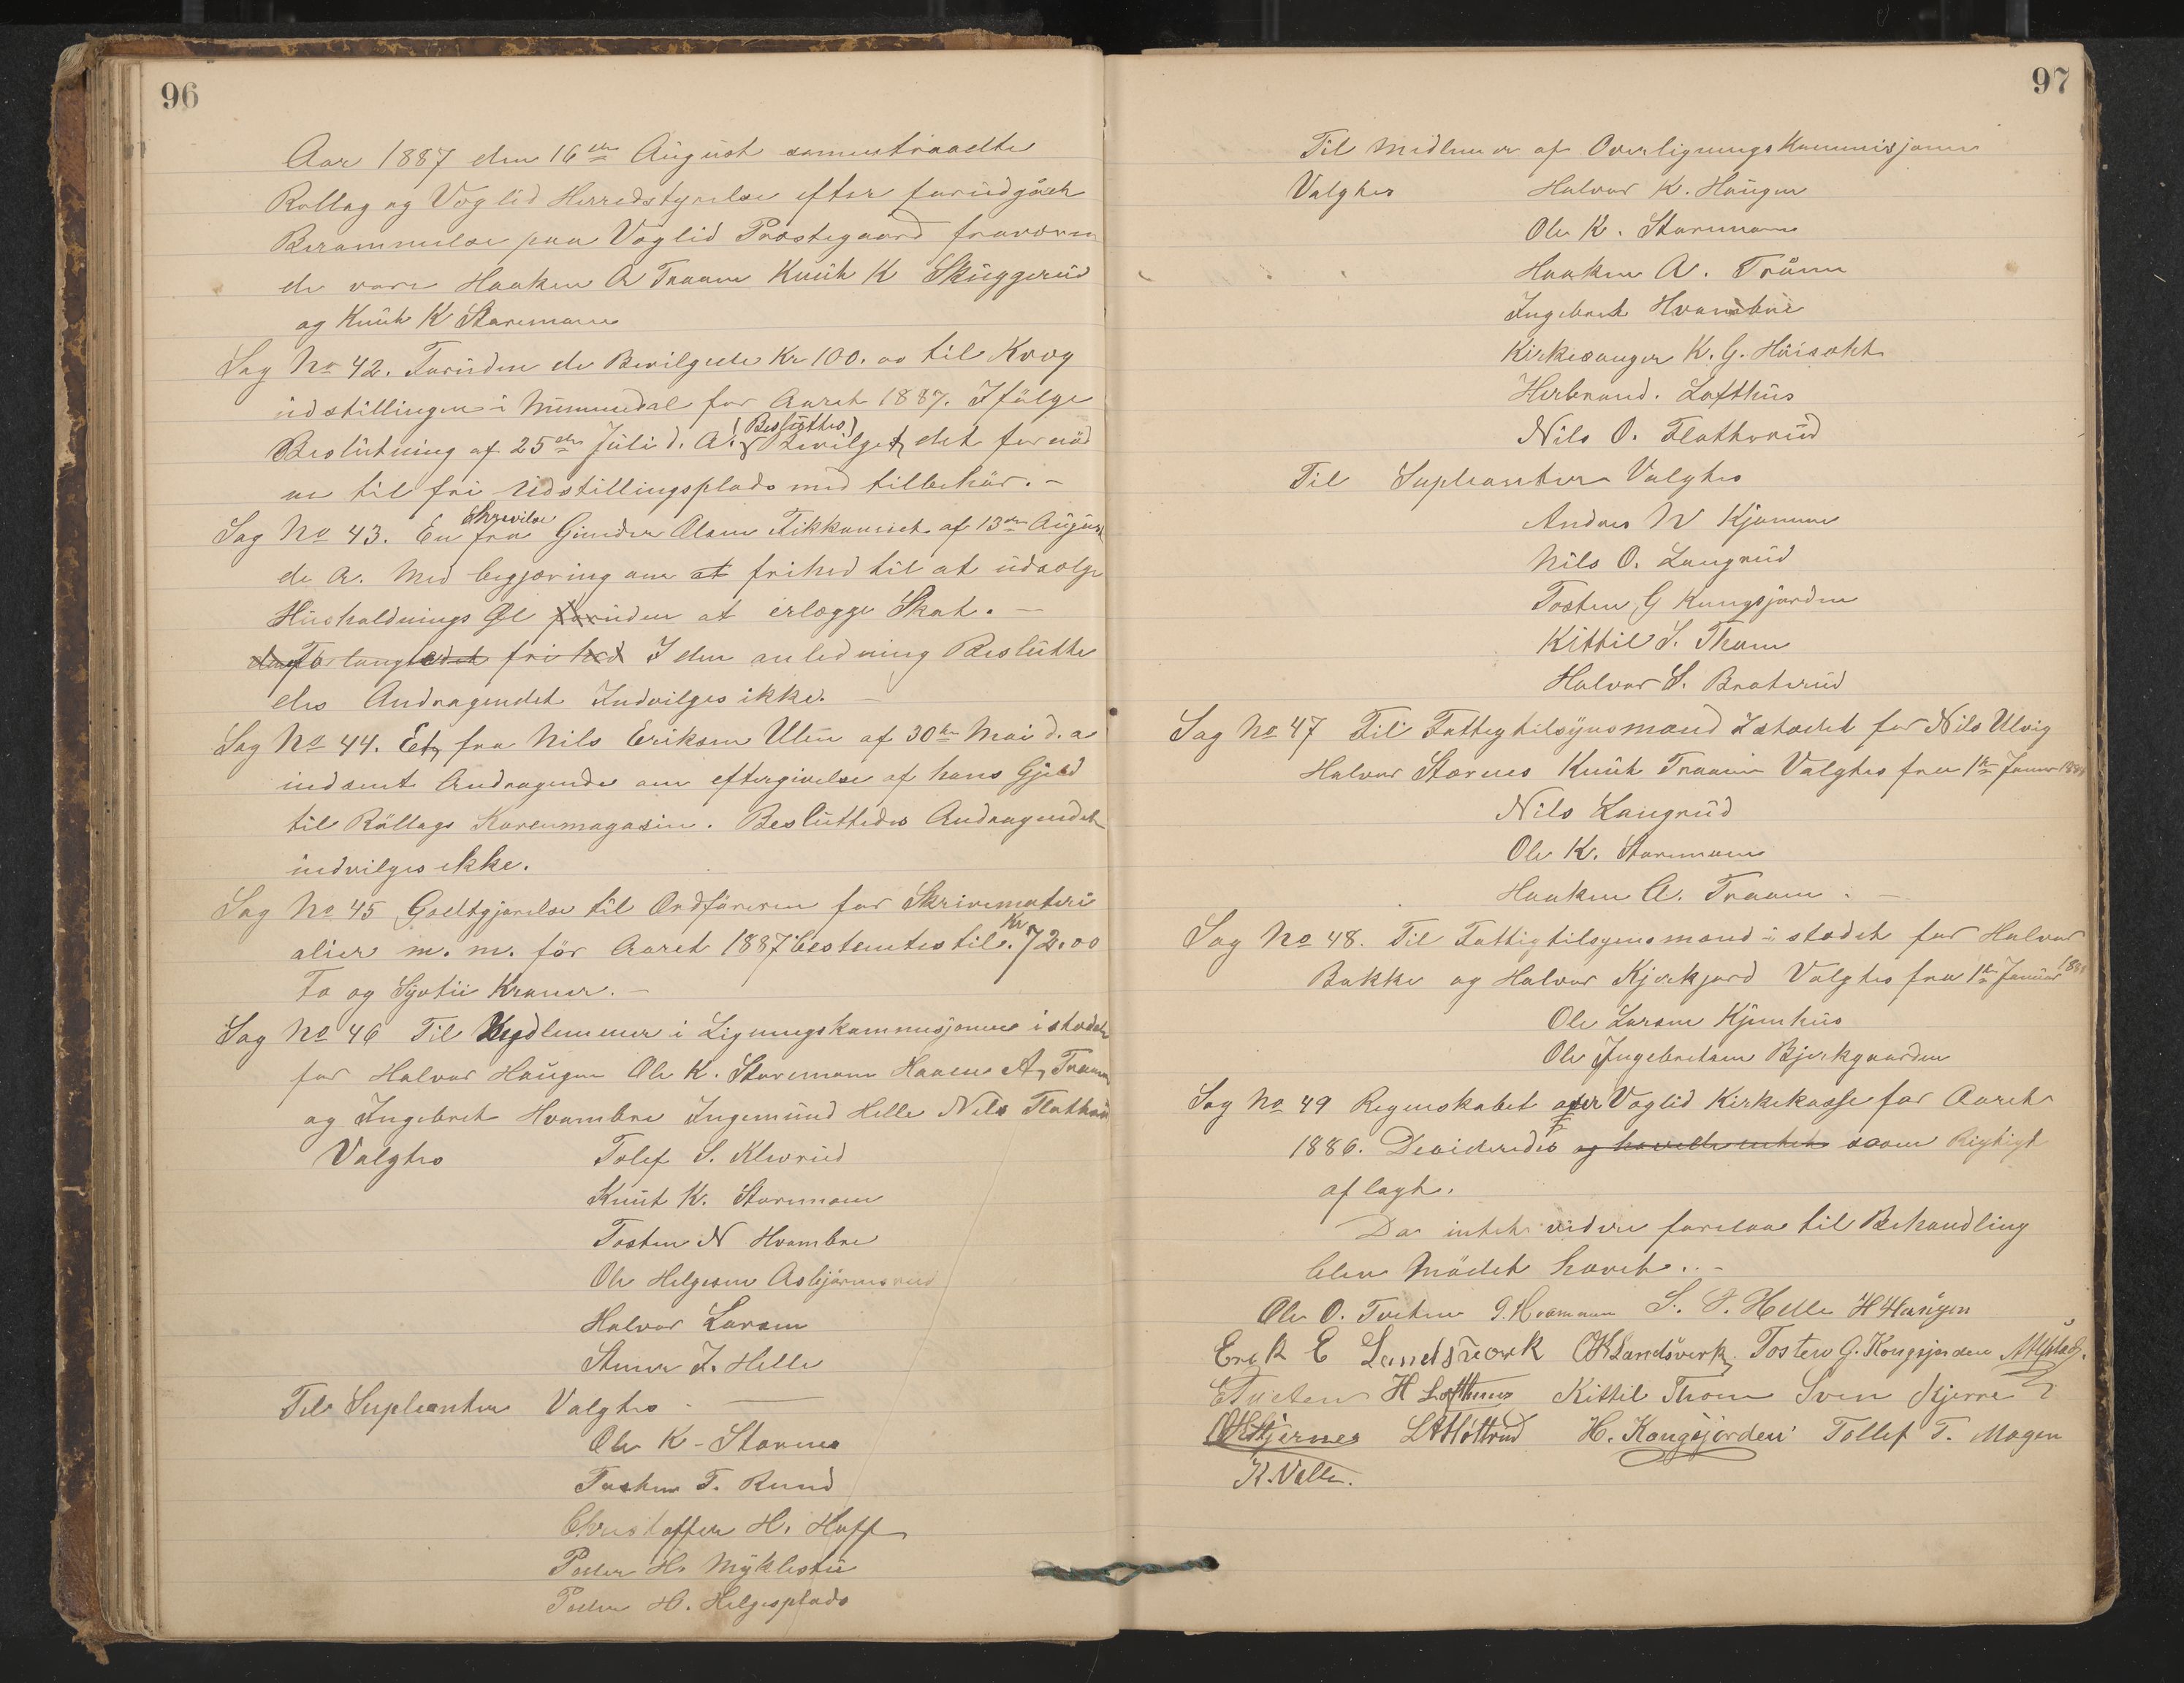 96
Aar 1887 den 16de August sammentraadte
Rollag og Væglid Herredstyrelse efter forudgået
Berammelse paa Væglid Præstegaard fraværen
de vare Haaken A Traaen Knut K Skuggerud
og Knut K Storemoen
Sag No 42. Foruden de Bevilgede Kr 100.00 til Kvæg
udstillingen i Nummedal for Aaret 1887. Ifølge
Beslutning af 25de Juli d. A. (Besluttes) Bevilget det fornød
ne til fri Udstillingsplads med tilbehør. –
Sag No 43. En Skrivelse fra Gunder Olsen Fikkan af 13de August
de A. Med begjæring om at frihed til at udsælge
Husholdnings Øl foruden at erlægge Skat. –
forlangtedet frihed I den anledning Beslutte
des Andragendet Indvilges ikke. –
Sag No 44. Et fra Nils Eriksen Ulen af 30te Mai d. a
indsent Andragende om eftergivelse af hans Gjeld
til Rollags Kornmagasin. Besluttedes Andragendet
indvilges ikke.
Sag No 45 Godtgjørelse til Ordføreren for Skrivemateri
alier m. m. for Aaret 1887 bestemtes til Kr. 72.00
To og Sytti Kroner. –
Sag No 46 Til Medlemmer i Ligningskommisjonen istedet
for Halvor Haugen Ole K. Storemoen Haaken A, Traaen
og Ingebret Hvambre Ingemund Helle Nils
Valgtes Tolef S. Klevrud
Knut K. Storemoen
Tosten N Hvambre
Ole Helgesen Asbjørnsrud
Halvor Larsen
Stener I. Helle
Til Supleanter Valgtes –
Ole K – Stærnes
Tosten T. Rund
Christoffer H. Hoff
Peder H. Myklestu
Peder H. Helgesplads
97
Til Medlemer af Overligningskommisjonen
Valgtes Halvor K. Haugen
Ole K. Storemoen
Haaken A. Tråen
Ingebret Hvambre
Kirkesanger K. G.
Herbrand. Lofthus
Nils O. Flatherud
Til Supleanter Valgtes
Anders N Kjemon
Nils O. Langrud
Tosten G Kongsjorden
Kittil S. Thoen
Halvor S. Braterud
Sag No 47 Til Fattigtilsynsmand Istædet for Nils Ulvig
Halvor Stærnes Knut Traaen Valgtes fra 1te Januar 1888
Nils Langrud
Ole K. Storemoen
Haaken A. Traaen. –
Sag No 48. Til Fattigtilsynsmand i stedet for Halvor
Bakke og Halvor Kjerkjord Valgtes fra 1te Januar 1888
Ole Larsen Kjemhus
Ole Ingebretsen Bjerkgaarden
Sag No 49 Regnskabet over Væglid Kirkekasse for Aaret
1886. Desideredes og havde intet som Rigtigt
aflagt.
Da intet videre forelaa til Behandling
blev Mødet hævet. . –
Ole O. Tveten S. S. Helle H Haugen
Erik E Landsverk OK Landsverk Tosten G. Kongsjorden
E Tveten H Lofthuus Kittil Thoen Sven Kjerre
OK Stjernes H. Kongsjorden Tollef T. Mogen
K. Velle.